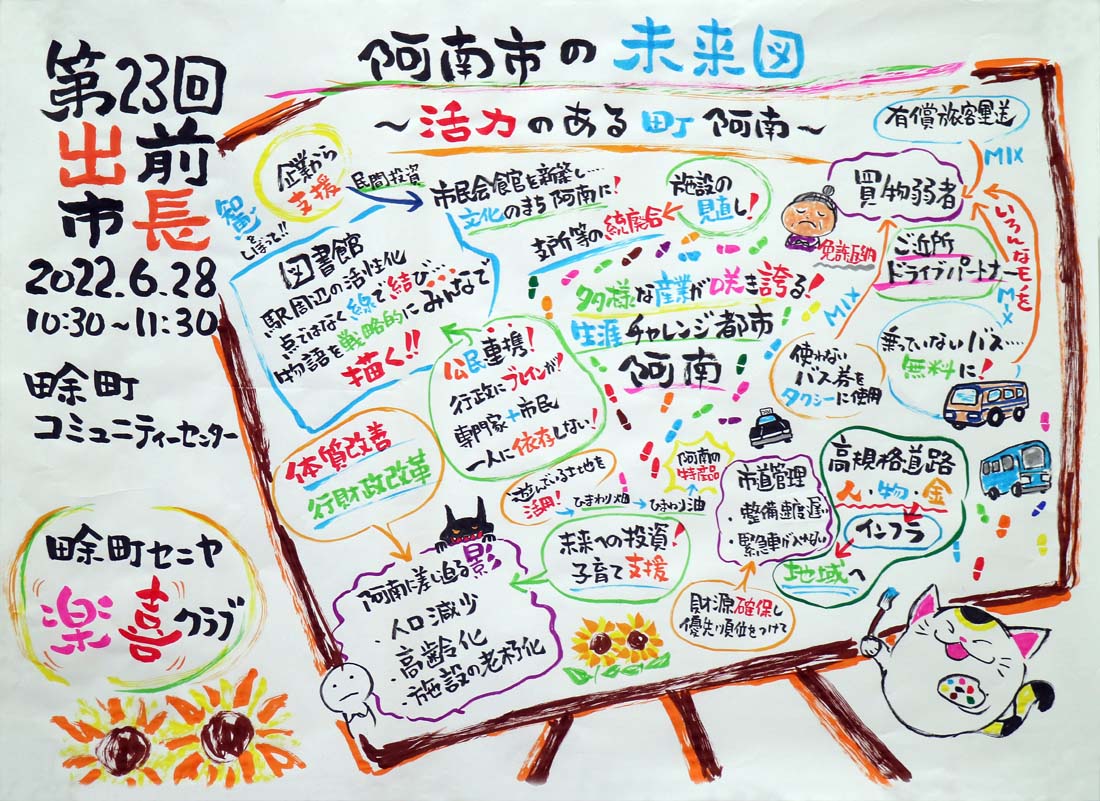 第23回
出前
市長
2022.6.28
10:30～11:30
畭町
コミュニティーセンター
畭町セニヤ
楽喜クラブ
阿南市の未来図
～活力のある町阿南～
企業から
支援
民間投資
智を
しぼって!!
市民会館を新築し…
文化のまち阿南に!
施設の
見直し!
支所等の統廃合
図書館
駅周辺の活性化
点ではなく線で結び…
物語を戦略的にみんなで
描く!!
多様な産業が咲き誇る!
生涯チャレンジ都市
阿南
公民連携!
行政にブレインが!
専門家+市民
一人に依存しない!
体質改善
行財政改革
遊んでいる土地を
活用!
ひまわり畑
ひまわり油
阿南の
特産品
未来への投資!
子育て支援
阿南に差し迫る影
・人口減少
・高齢化
・施設の老朽化
有償旅客運送
MIX
買物弱者
免許返納
ご近所
ドライブパートナー
いろんなモノを
MIX
MIX
使わない
バス券を
タクシーに使用
乗っていないバス…
無料に!
市道管理
・整備速度遅い
・緊急車が入れない
財源確保し
優先順位をつけて
高規格道路
人・物・金
インフラ
地域へ